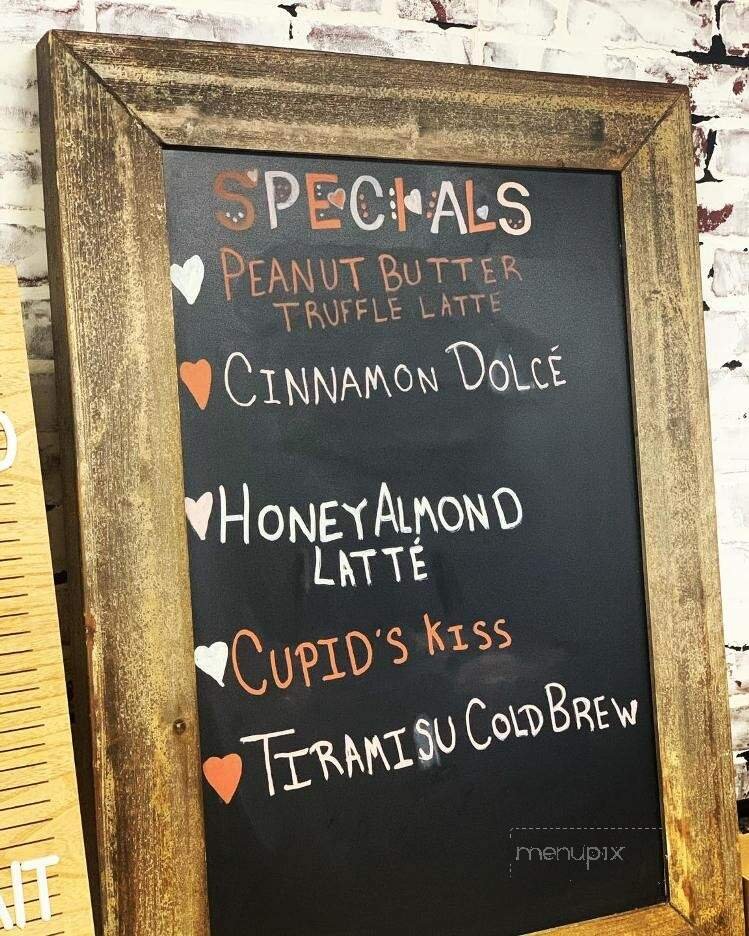 SPECIALS
PEANUT BUTTER
TRUFFLE LATTE
CINNAMON DOLCÉ
HONEY ALMOND
LATTÉ
CUPID'S KISS
TIRAMISU COLD BREW
menupix